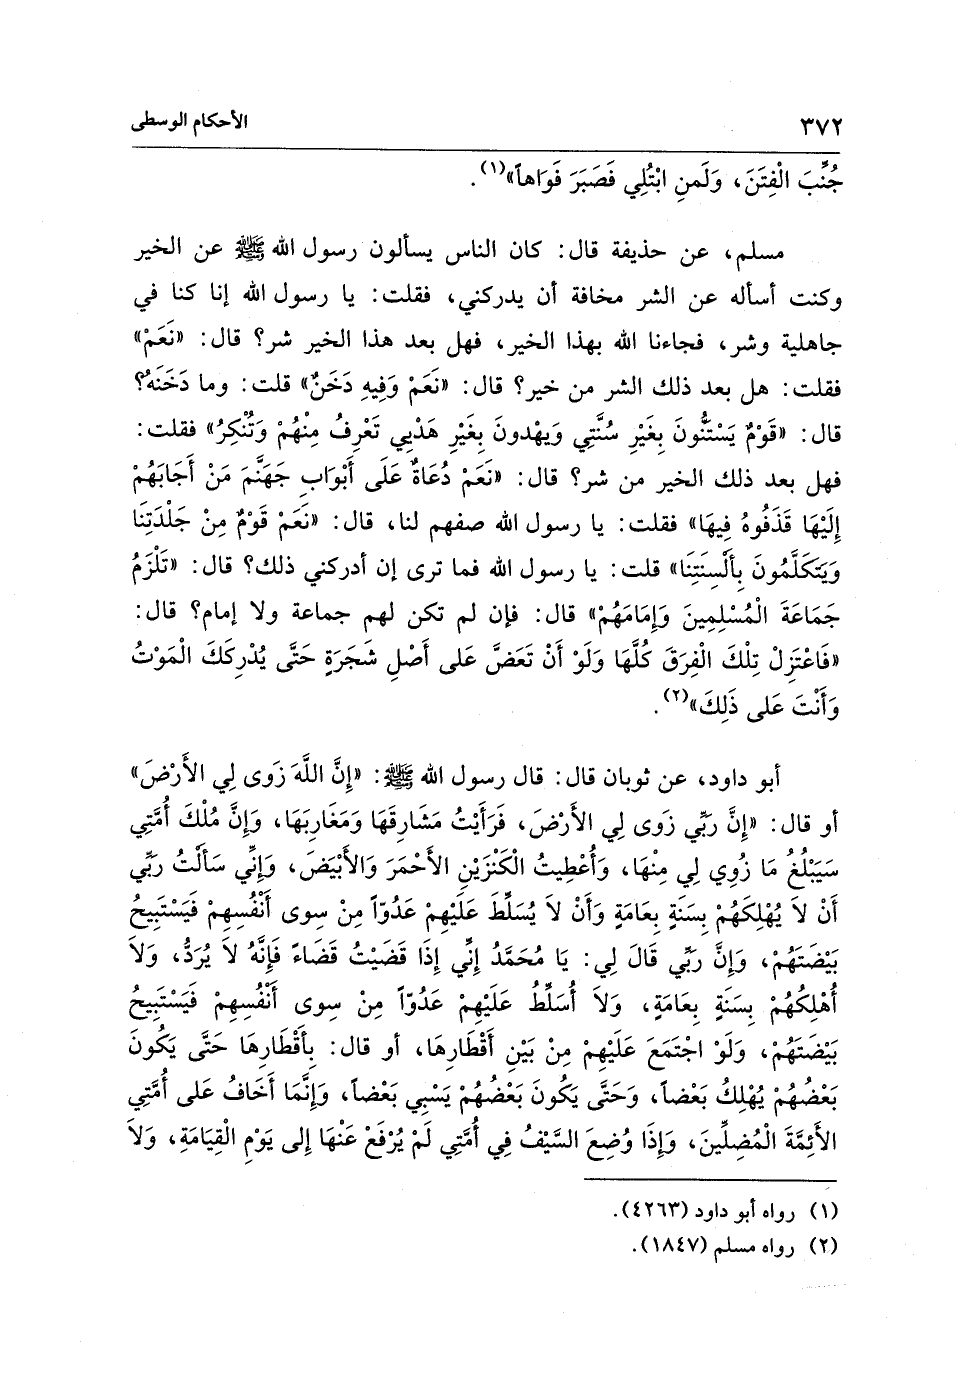 ٣٧٢ الأحكام الوسطى
جُنِّبَ الْفِتَنَ، وَلَمنِ ابْتُلِي فَصَبَرَ فَوَاهاً»(١).
مسلم، عن حذيفة قال: كان الناس يسألون رسول الله ﷺ عن الخير
وكنت أسأله عن الشر مخافة أن يدركني، فقلت: يا رسول الله إنا كنا في
جاهلية وشر، فجاءنا الله بهذا الخير، فهل بعد هذا الخير شر؟ قال: «نَعَمْ»
فقلت: هل بعد ذلك الشر من خير؟ قال: «نَعَمْ وَفِيهِ دَخَنٌ» قلت: وما دَخَنَهُ؟
قال: «قَوْمٌ يَسْتَنُّونَ بِغَيْرِ سُنَّتِي وَيَهْدونَ بِغَيْرِ هَدْيِي تَعْرِفُ مِنْهُمْ وَتُنْكِرُ» فقلت:
فهل بعد ذلك الخير من شر؟ قال: «نَعَمْ دُعَاةٌ عَلَى أَبْوَابِ جَهَنَّمَ مَنْ أَجَابَهُمْ
إِلَيْهَا قَذَفُوهُ فِيهَا» فقلت: يا رسول الله صفهم لنا، قال: «نَعَمْ قَوْمٌ مِنْ جَلْدَتِنَا
وَيَتَكَلَّمُونَ بِأَلْسِنَتِنَا» قلت: يا رسول الله فما ترى إن أدركني ذلك؟ قال: «تَلْزَمُ
جَمَاعَةَ الْمُسْلِمِينَ وَإِمَامَهُمْ» قال: فإن لم تكن لهم جماعة ولا إمام؟ قال:
«فَاعْتَزِلْ تِلْكَ الْفِرَقَ كُلَّهَا وَلَوْ أَنْ تَعَضَّ عَلى أَصْلِ شَجَرَةٍ حَتَّى يُدْرِكَكَ الْمَوْتُ
وَأَنْتَ عَلى ذَلِكَ»(٢).
أبو داود، عن ثوبان قال: قال رسول الله ﷺ: «إِنَّ اللَّهَ زَوى لِي الأَرْضَ»
أو قال: «إِنَّ رَبِّي زَوى لِي الأَرْضَ، فَرَأَيْتُ مَشَارِقَهَا وَمَغَارِبَهَا، وَإِنَّ مُلْكَ أُمَّتِي
سَيَبْلُغُ مَا زُوِي لِي مِنْهَا، وَأُعْطِيتُ الْكَنْزَيْنِ الأَحْمَرَ وَالأَبْيَضَ، وَإِنِّي سَأَلْتُ رَبِّي
أَنْ لاَ يُهْلِكَهُمْ بِسَنَةٍ بِعَامَةٍ وَأَنْ لاَ يُسَلِّطَ عَلَيْهِمْ عَدُوّاً مِنْ سِوى أَنْفُسِهِمْ فَيَسْتَبِيحُ
بَيْضَتَهُمْ، وَإِنَّ رَبِّي قَالَ لِي: يَا مُحَمَّدُ إِنِّي إِذَا قَضَيْتُ قَضَاءً فَإِنَّهُ لاَ يُرَدُّ، وَلاَ
أُهْلِكُهُمْ بِسَنَةٍ بِعَامَةٍ، وَلاَ أُسَلِّطُ عَلَيْهِمْ عَدُوّاً مِنْ سِوى أَنْفُسِهِمْ فَيَسْتَبِيحُ
بَيْضَتَهُمْ، وَلَوْ اجْتَمَعَ عَلَيْهِمْ مِنْ بَيْنِ أَقْطَارِهَا، أو قال: بِأَقْطَارِهَا حَتَّى يَكُونَ
بَعْضُهُمْ يُهْلِكُ بَعْضاً، وَحَتَّى يَكُونَ بَعْضُهُمْ يَسْبِي بَعْضاً، وَإِنَّمَا أَخَافُ عَلى أُمَّتِي
الأَئِمَّةَ الْمُضِلِّينَ، وَإِذَا وُضِعَ السَّيْفُ فِي أُمَّتِي لَمْ يُرْفَعْ عَنْهَا إِلى يَوْمِ الْقِيَامَةِ، وَلاَ
(١) رواه أبو داود (٤٢٦٣).
(٢) رواه مسلم (١٨٤٧).